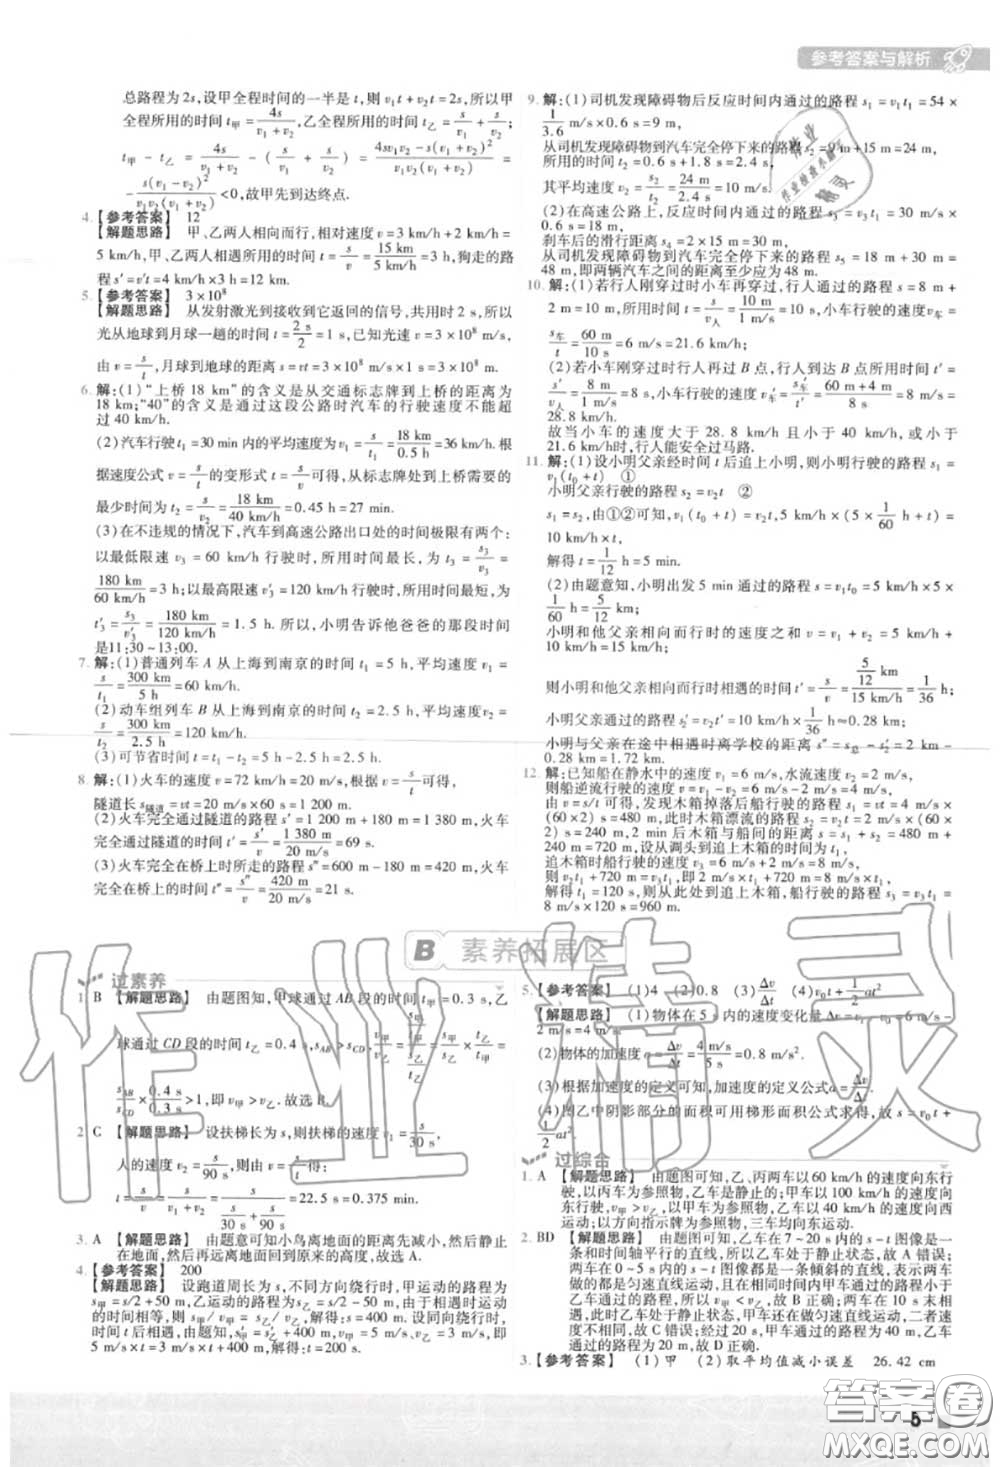 参考答案与解析
总路程为2s,设甲全程时间的一半是t,则v₁t+v₂t=2s,所以甲
全程所用的时间t甲=4s/(v₁+v₂),乙全程所用的时间t乙=s/v₁+s/v₂.
t甲-t乙=4s/(v₁+v₂)-(s/v₁+s/v₂)=(4sv₁v₂-s(v₁+v₂)²)/(v₁v₂(v₁+v₂))=
-s(v₁-v₂)²/(v₁v₂(v₁+v₂))<0,故甲先到达终点.
4.【参考答案】 12
【解题思路】 甲、乙两人相向而行,则v=3 km/h+2 km/h=
5 km/h,甲、乙两人相遇所用的时间t=s/v=15 km/5 km/h=3 h,狗走的路
程s′=v′t=4 km/h×3 h=12 km.
5.【参考答案】 3×10⁸
【解题思路】 从发射激光到接收到它返回的信号,共用时2 s,所以
光从地球到月球一趟的时间t=2 s/2=1 s,已知光速v=3×10⁸ m/s,
由v=s/t,月球到地球的距离s=vt=3×10⁸ m/s×1 s=3×10⁸ m.
6.解:(1)“上桥18 km”的含义是从交通标志牌到上桥的距离为
18 km;“40”的含义是通过这段公路时汽车的行驶速度不能超
过40 km/h.
(2)汽车行驶t₁=30 min内的平均速度v₁=s/t₁=18 km/0.5 h=36 km/h.根
据速度公式v=s/t的变形式t=s/v可知,从标志牌处到上桥需要的
最少时间为t₂=s/v₂=18 km/40 km/h=0.45 h=27 min.
(3)在不违规的情况下,汽车到高速公路出口处的时间极限有两个:
以最低限速v₃=60 km/h行驶时,所用时间最长,为t₃=s₃/v₃=
180 km/60 km/h=3 h;以最高限速v′₃=120 km/h行驶时,所用时间最短,为
t′₃=s₃/v′₃=180 km/120 km/h=1.5 h.所以,小明告诉他爸爸的那段时间
是11:30~13:00.
7.解:(1)普通列车A从上海到南京的时间t₁=5 h,平均速度v₁=
s/t₁=300 km/5 h=60 km/h.
(2)动车组列车B从上海到南京的时间t₂=2.5 h,平均速度v₂=
s/t₂=300 km/2.5 h=120 km/h.
(3)可节省时间t=t₁-t₂=5 h-2.5 h=2.5 h.
8.解:(1)火车的速度v=72 km/h=20 m/s,根据v=s/t可得,
隧道长s隧道=vt=20 m/s×60 s=1 200 m.
(2)火车完全通过隧道的路程s′=1 200 m+180 m=1 380 m,
火车完全通过隧道的时间t′=s′/v=1 380 m/20 m/s=69 s.
(3)火车完全在桥上时所走的路程s″=600 m-180 m=420 m,火车
完全在桥上的时间t″=s″/v=420 m/20 m/s=21 s.
9.解:(1)司机发现障碍物后反应时间内通过的路程s₁=v₁t₁=54×
1/3.6 m/s×0.6 s=9 m,
从司机发现障碍物到汽车完全停下来的路程s₃=9 m+15 m=24 m,
所用的时间t₂=0.6 s+1.8 s=2.4 s,
其平均速度v₂=s₃/t₂=24 m/2.4 s=10 m/s.
(2)在高速公路上,反应时间内通过的路程s₃=v₃t₁=30 m/s×
0.6 s=18 m,
刹车后的滑行距离s₄=2×15 m=30 m,
从司机发现障碍物到汽车完全停下来的路程s₅=18 m+30 m=
48 m,即两辆汽车之间的距离至少应为48 m.
10.解:(1)若行人刚穿过时小车再穿过,行人通过的路程s=8 m+
2 m=10 m,所用时间t=s/v人=10 m/1 m/s=10 s,小车行驶的速度v车=
s车/t=60 m/10 s=6 m/s=21.6 km/h;
(2)若小车刚穿过时行人再过B点,行人到B点所用时间t′=
s′/v人=8 m/1 m/s=8 s,小车行驶的速度v′车=s′车/t′=60 m+4 m/8 s=8 m/s=
28.8 km/h.
故当小车的速度大于28.8 km/h且小于40 km/h,或小于
21.6 km/h时,行人能安全过马路.
11.解:(1)设小明父亲经时间t后追上小明,则小明的路程s₁=
v₁(t₀+t) ①
小明父亲行驶的路程s₂=v₂t ②
s₁=s₂,由①②可知,v₁(t₀+t)=v₂t,5 km/h×(5×1/60 h+t)=
10 km/h×t,
解得t=1/12 h=5 min.
(2)由题意知,小明出发5 min通过的路程s=v₁t₀=5 km/h×5×
1/60 h=5/12 km,
小明和他父亲相向而行时的速度之和v=v₁+v₂=5 km/h+
10 km/h=15 km/h,
则小明和他父亲相向而行时相遇的时间t′=s/v=5/12 km/15 km/h=1/36 h,
小明父亲通过的路程s₂′=v₂t′=10 km/h×1/36 h≈0.28 km.
小明与父亲在途中相遇时离学校的距离s″=s总-s₂′=2 km-
0.28 km=1.72 km.
12.解:已知船在静水中的速度v₁=6 m/s,水流速度v₂=2 m/s,
则船逆流行驶的速度v=v₁-v₂=6 m/s-2 m/s=4 m/s,
由v=s/t可得,发现木箱掉落后船行驶的路程s₁=vt=4 m/s×
(60×2) s=480 m,此时木箱漂流的路程s₂=v₂t=2 m/s×(60×
2) s=240 m,2 min后木箱与船间的距离s=s₁+s₂=480 m+
240 m=720 m,设从调头到追上木箱的时间为t₁,
追木箱时船行驶的速度v₃=v₁+v₂=6 m/s+2 m/s=8 m/s,
则v₂t₁+720 m=v₃t₁,即2 m/s×t₁+720 m=8 m/s×t₁,
解得t₁=120 s,则从此处到追上木箱,船行驶的路程s₃=v₃t₁=
8 m/s×120 s=960 m.
B 素养拓展区
过素养
1. B 【解题思路】 由题图知,甲球通过AB段的时间t甲=0.3 s,乙
球通过CD段的时间t乙=0.4 s,sAB>sCD,v甲/v乙=s甲/t甲/s乙/t乙=s甲/s乙×t乙/t甲=
sAB/sCD×0.4 s/0.3 s>1,即v甲>v乙.故选B.
2. C 【解题思路】 设扶梯长为s,则扶梯的速度v₁=s/t₁=s/30 s,
人的速度v₂=s/t₂=s/90 s,则由题意得:
t=s/(v₁+v₂)=s/(s/30 s+s/90 s)=22.5 s=0.375 min.
3. A 【解题思路】 由题意可知小鸟离地面的距离先减小,然后停
在地面,然后再远离地面回到原来的高度,故选A.
4.【参考答案】 200
【解题思路】 设跑道周长为s,不同方向绕行时,甲运动的路程为
s甲=s/2+50 m,乙运动的路程为s乙=s/2-50 m,由于相遇时甲、乙
的时间相等,所以v甲/v乙=s甲/s乙,解得:s=400 m.设同方向绕行
时相遇时间为t,由题意知:s′甲=s′乙+400 m,v甲t=v乙t+400 m,即
5 m/s×t=3 m/s×t+400 m,解得:t=200 s.
5.【参考答案】 (1)4 (2)0.8 (3)Δv/Δt (4)v₀t+1/2at²
【解题思路】 (1)物体在5 s内的速度变化量Δv=6 m/s-
2 m/s=4 m/s.
(2)物体的加速度a=Δv/Δt=4 m/s/5 s=0.8 m/s².
(3)根据加速度的定义可知,加速度的定义公式a=Δv/Δt.
(4)图乙中阴影部分的面积可用梯形面积公式求得,故s=v₀t+
1/2at².
过综合
1. A 【解题思路】 由题图可知,乙、丙两车以60 km/h的速度向东行
驶,以丙车为参照物,乙车是静止的;甲车以100 km/h的速度向东
行驶,故v甲>v乙,以甲车为参照物,乙车的运动方向是向西
运动;以方向指示牌为参照物,三车均向东运动.
2. BD 【解题思路】 由题图可知,乙车在7~20 s内的s-t图像是一
条和时间轴平行的直线,所以乙车处于静止状态,故A错误;
两车在0~5 s内的s-t图像都是一条倾斜的直线,表示两车
都做匀速直线运动,且在相同时间内甲车通过的路程小于
乙车,所以v甲<v乙,故B正确;两车在10 s末相遇,相遇
时,乙车处于静止状态,甲车还在做匀速直线运动,二者速
度不相同,故C错误;经过20 s,甲车通过的路程为40 m,乙车
通过的路程为20 m,故D正确.
3.【参考答案】 (1)甲 (2)取平均值减小误差 26.42 cm
作业精灵
答案卷
MXQE.COM
5